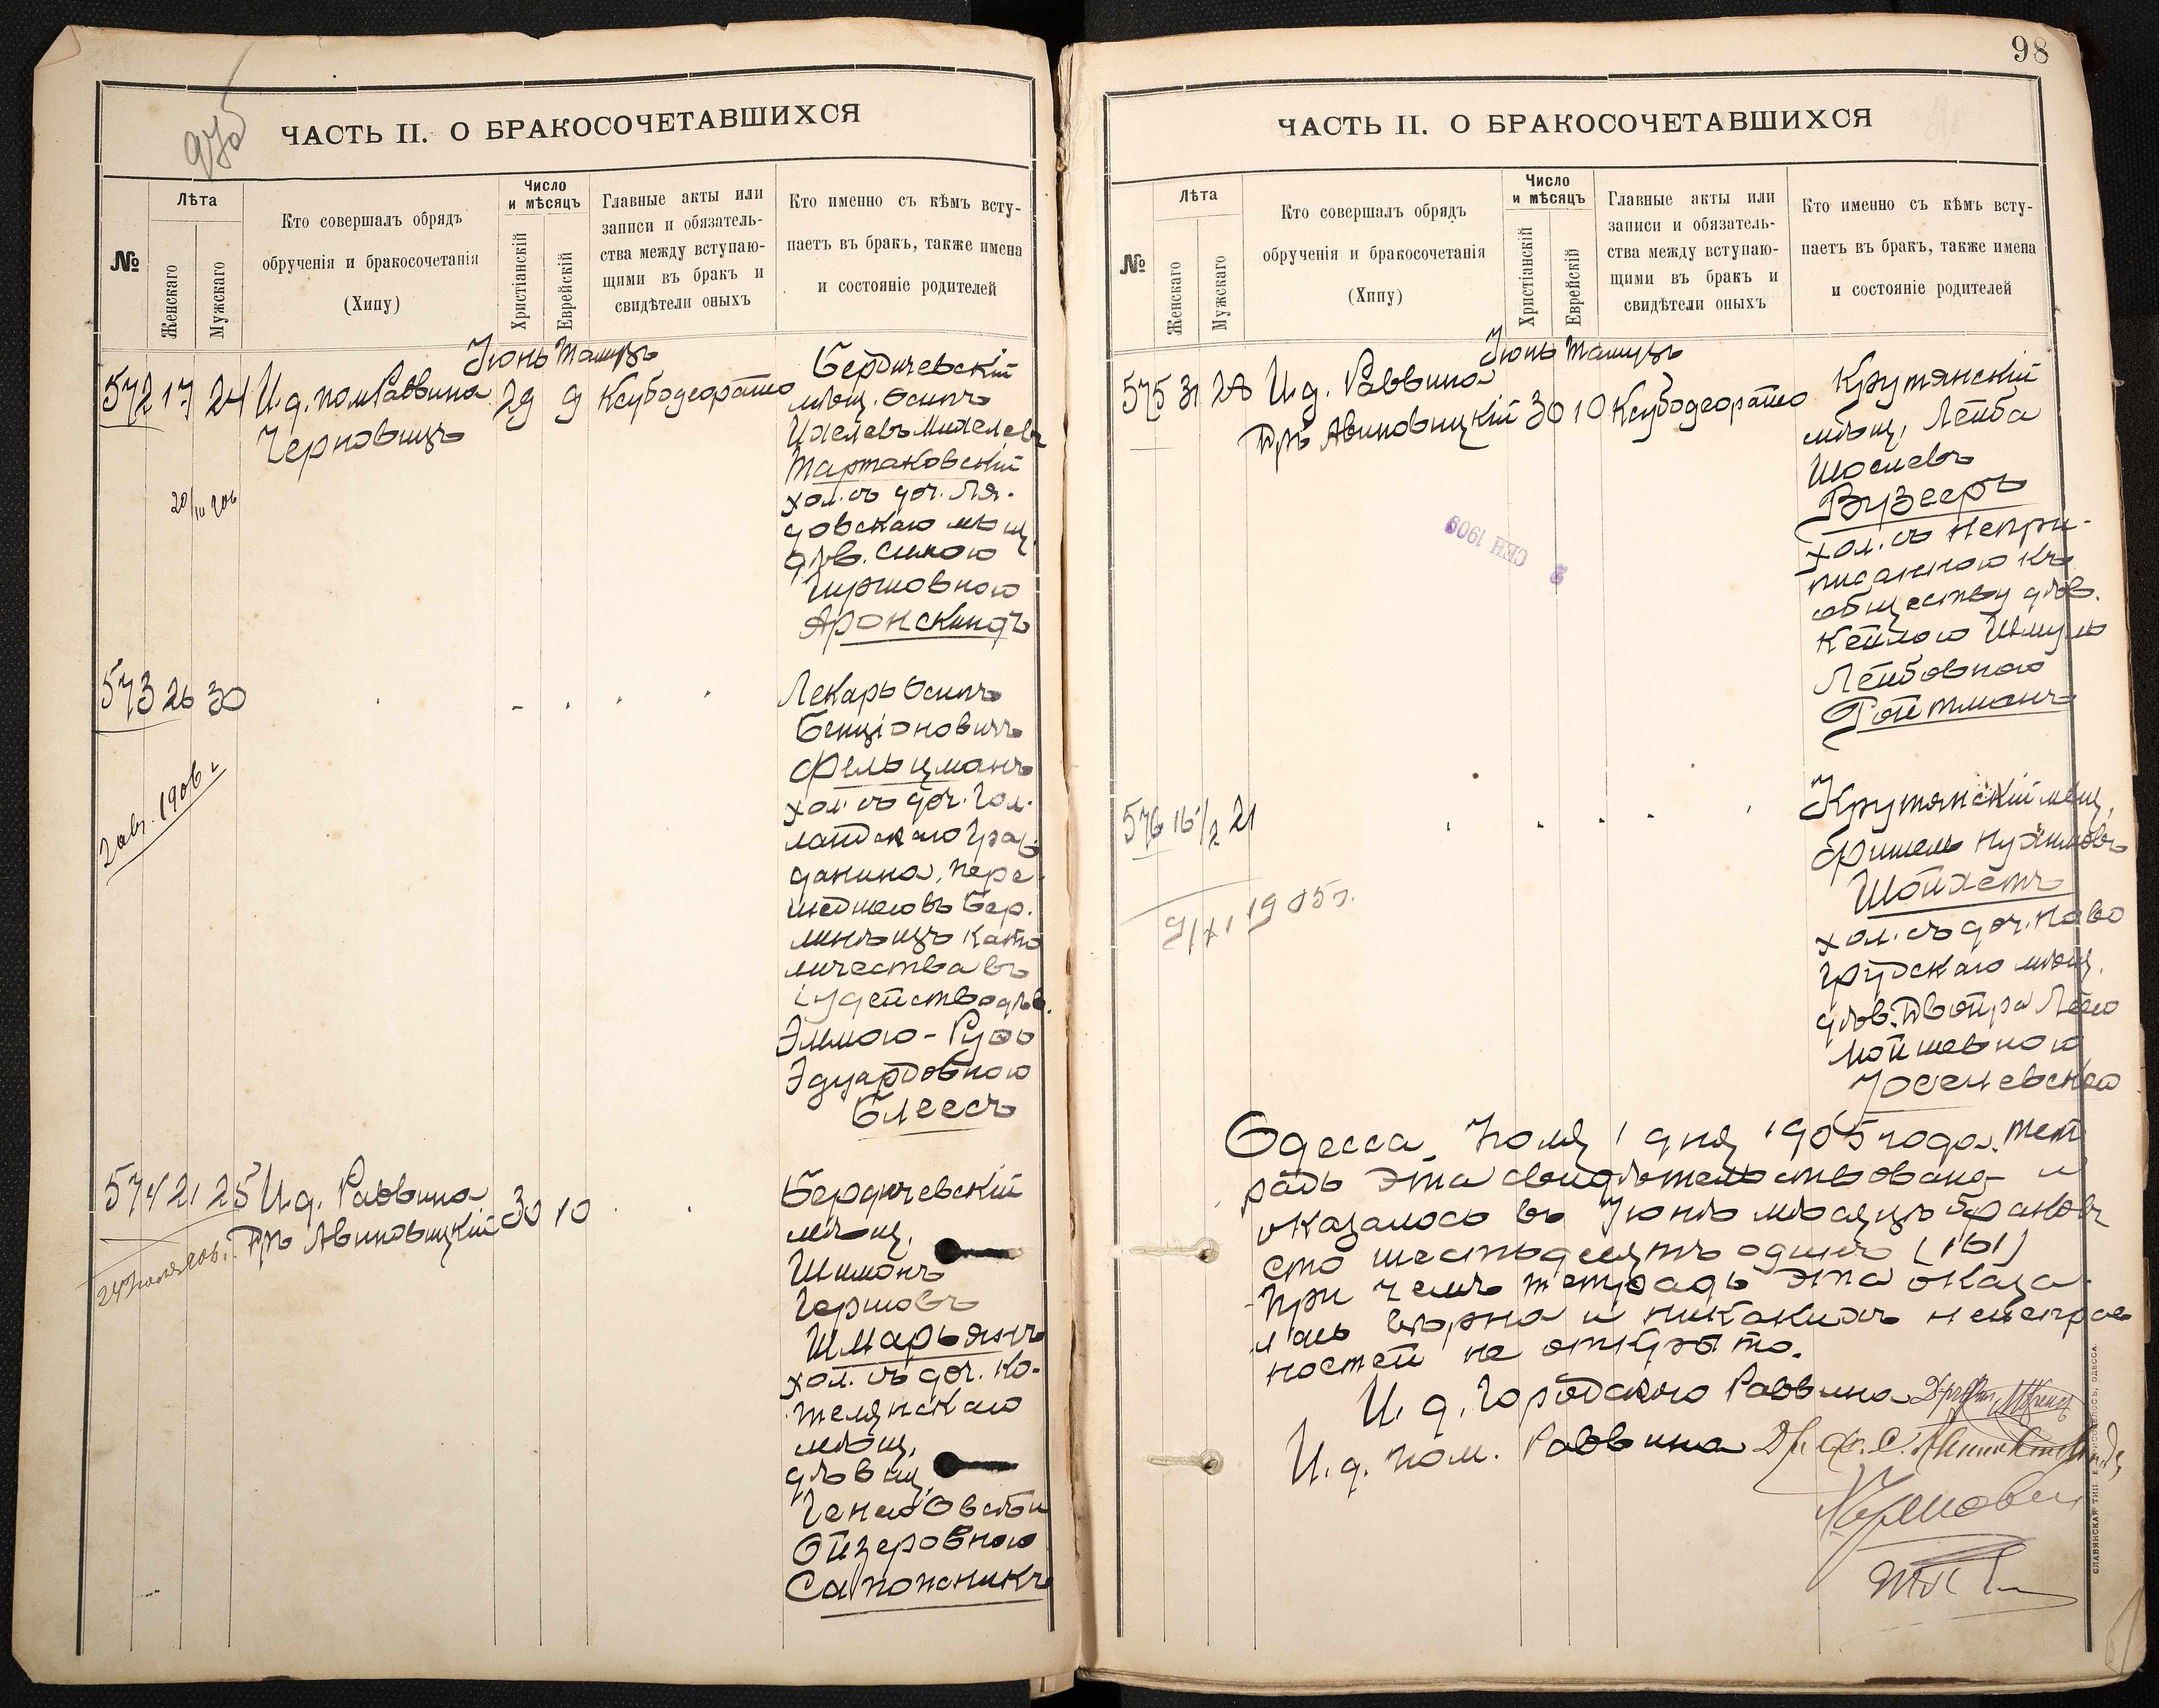 ЧАСТЬ II. О БРАКОСОЧЕТАВШИХСЯ
№
Лѣта
Женскаго
Мужскаго
Кто совершалъ обрядъ
обрученія и бракосочетанія
(Хипу)
Число
и мѣсяцъ
Христіанскій
Еврейскій
Главные акты или
записи и обязатель-
ства между вступаю-
щими въ бракъ и
свидѣтели оныхъ
Кто именно съ кѣмъ всту-
паетъ въ бракъ, также имена
и состояніе родителей
Іюнь Тамузъ
572 17 24 И. д. пом. Раввина 29 9 Ксубо деорато
Черновицъ
Бердичевскій
мѣщ. Осипъ
Ихелевъ Михелевъ
Тартаковскій
хол. съ доч. Ля-
довскаго мѣщ.
дѣв. Симою
Гуршовною
Аронскиндъ
573 26 30
2 авг. 1906 г.
Лекарь Осипъ
Бенціоновичъ
Фельцманъ
хол. съ доч. Гол-
ландскаго граж-
данина, пере-
шедшею въ Бер-
линѣ изъ като
личества въ
іудейство дѣв.
Эммою-Руѳь
Эдуардовною
Блеесъ
574 21 25 И. д. Раввина 30 10
Дръ Авиновицкій
Бердичевскій
мѣщ.
Шимонъ
Гершовъ
Шмарьянъ
хол. съ доч. Ко-
телянскаго
мѣщ.
дѣвиц.
Ойзеровною
Сапожникъ
98
ЧАСТЬ II. О БРАКОСОЧЕТАВШИХСЯ
№
Лѣта
Женскаго
Мужскаго
Кто совершалъ обрядъ
обрученія и бракосочетанія
(Хипу)
Число
и мѣсяцъ
Христіанскій
Еврейскій
Главные акты или
записи и обязатель-
ства между вступаю-
щими въ бракъ и
свидѣтели оныхъ
Кто именно съ кѣмъ всту-
паетъ въ бракъ, также имена
и состояніе родителей
Іюнь Тамузъ
575 31 28 И. д. Раввина
Дръ Авиновицкій 30 10 Ксубо деорато
2 СЕН 1909
Крутянскій
мѣщ. Лейба
Іосіевъ
Вузееръ
хол. съ непри-
писанною къ
обществу дѣв.
Кейлою Шмуль
Лейбовною
Ройтманъ
576 16 1/2 21
9/XI 1905 г.
Крутянскій мѣщ.
Фишель Нухимовъ
Шойхетъ
хол. съ доч. Ново
грудскаго мѣщ.
дѣв. Двойра Леею
Мойшевною
Іоселевская
Одесса Іюля 1 дня 1905 года. Тет
радь эта свидѣтельствована и
оказалось въ Іюнѣ мѣсяцѣ браковъ
сто шестьдесятъ одинъ (161)
При чемъ тетрадь эта оказа-
лась вѣрна и никакихъ неисправ
ностей не открыто.
И. д. Городского Раввина
И. д. пом. Раввина
СЛАВЯНСКАЯ ТИП. Е. ХРИСОГЕЛОСЪ, ОДЕССА